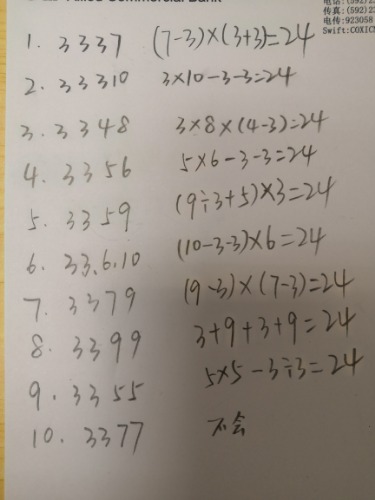 电话:(592)2
传真:(592)2
电传:923058
Swift:COXIC
1. 3 3 3 7 (7-3)×(3+3)=24
2. 3 3 3 10 3×10-3-3=24
3. 3 3 4 8 3×8×(4-3)=24
4. 3 3 5 6 5×6-3-3=24
5. 3 3 5 9 (9÷3+5)×3=24
6. 3 3.6.10 (10-3-3)×6=24
7. 3 3 7 9 (9-3)×(7-3)=24
8. 3 3 9 9 3+9+3+9=24
9. 3 3 5 5 5×5-3÷3=24
10. 3 3 7 7 不会